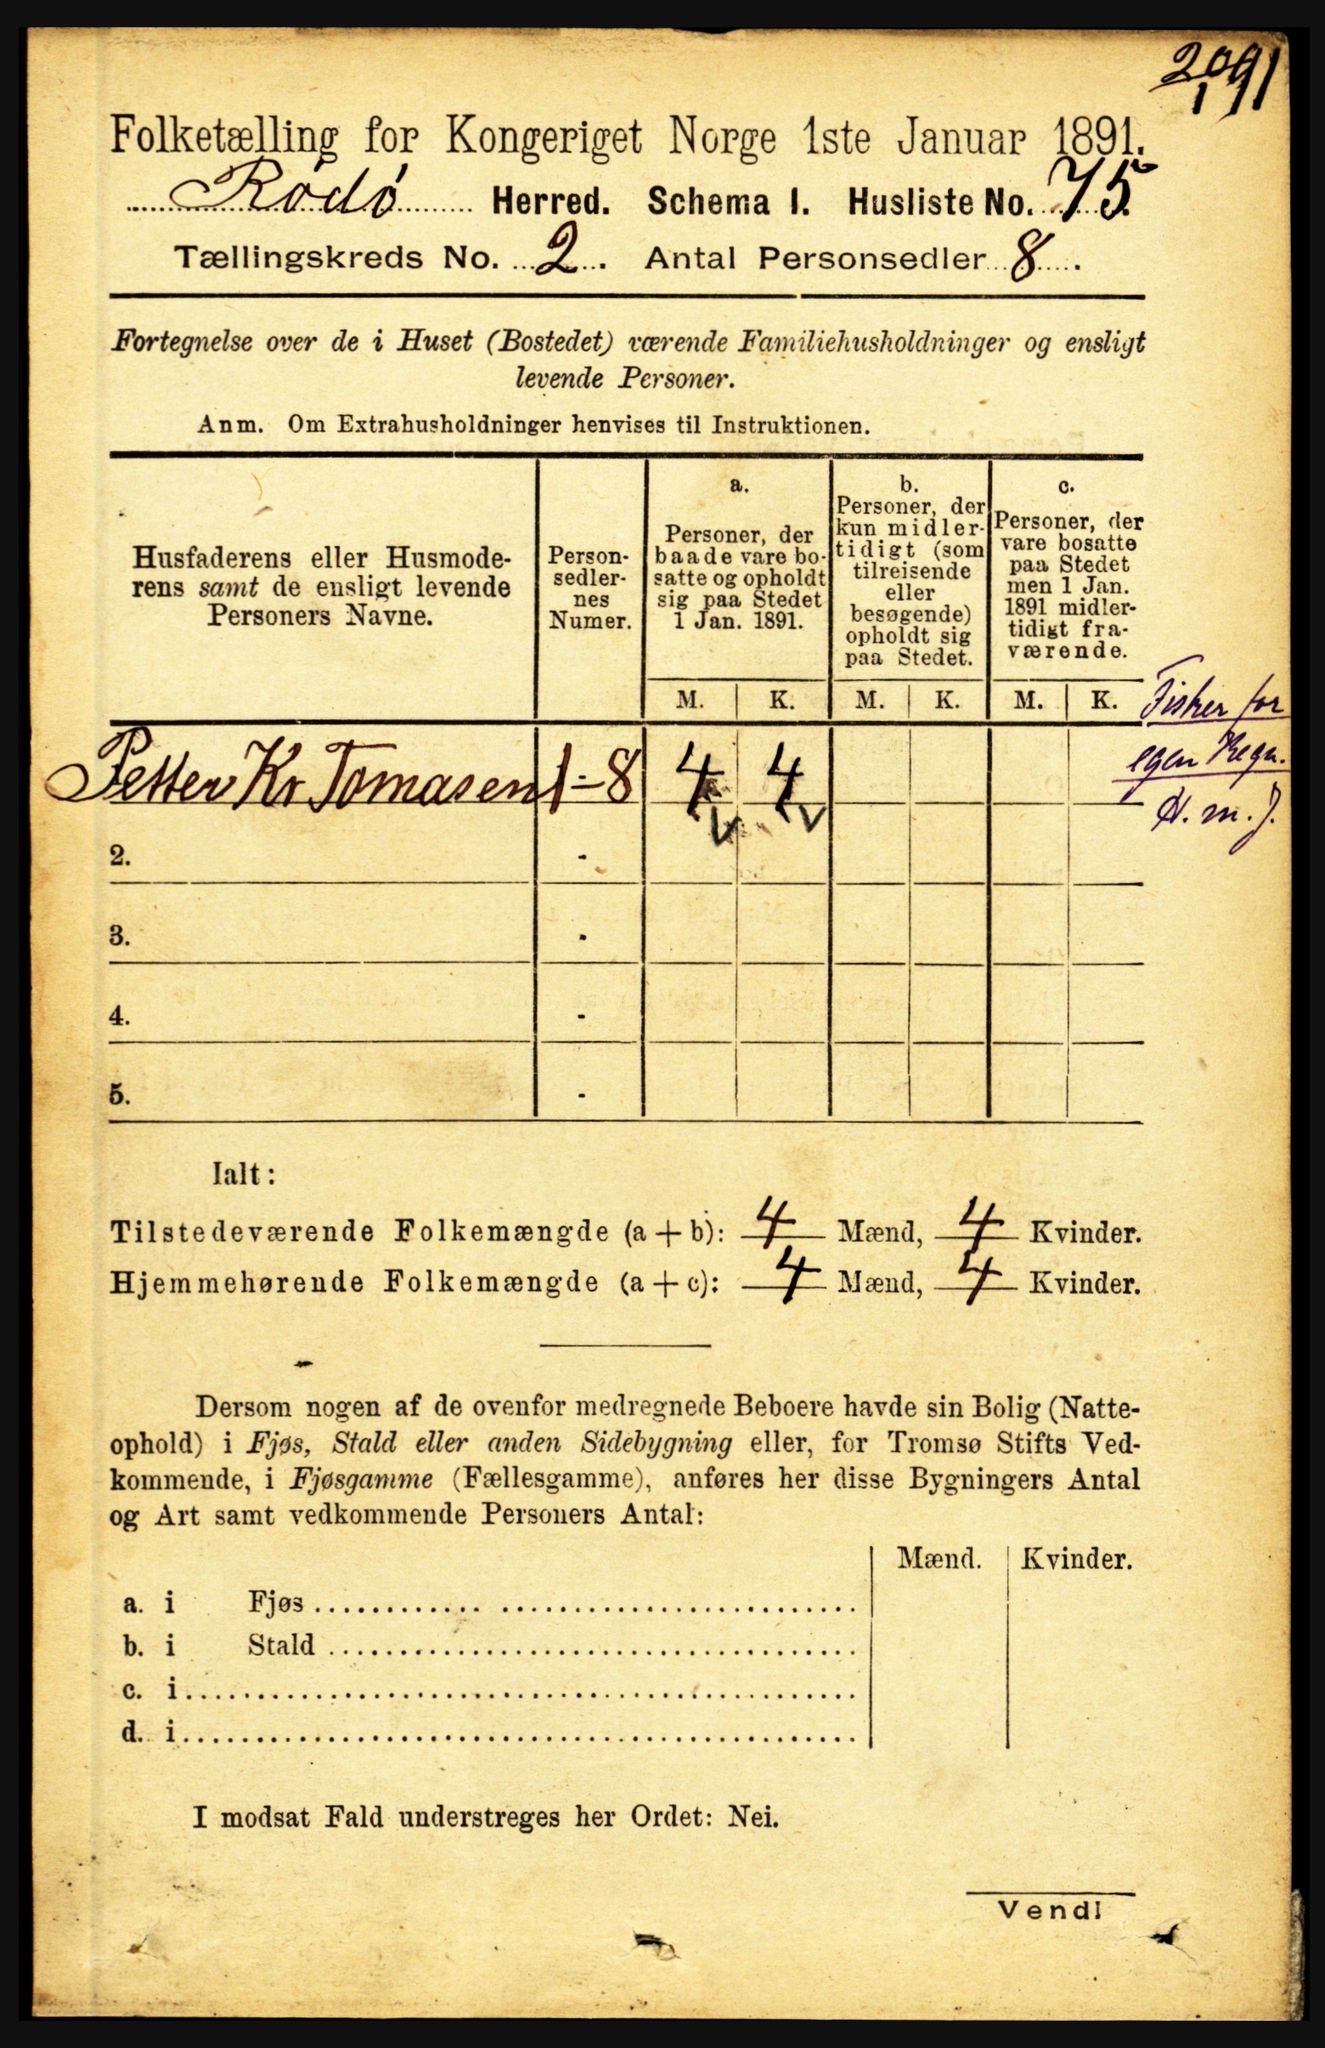 Folketælling for Kongeriget Norge 1ste Januar 1891.
Rödø Herred. Schema I. Husliste No. 75
Tællingskreds No. 2. Antal Personsedler 8.
Fortegnelse over de i Huset (Bostedet) værende Familiehusholdninger og ensligt
levende Personer.
Anm. Om Extrahusholdninger henvises til Instruktionen.
Husfaderens eller Husmode-
rens samt de ensligt levende
Personers Navne.
Person-
sedler-
nes
Numer.
a.
Personer, der
baade vare bo-
satte og opholdt
sig paa Stedet
1 Jan. 1891.
b.
Personer, der
kun midler-
tidigt (som
tilreisende
eller
besøgende)
opholdt sig
paa Stedet.
c.
Personer, der
vare bosatte
paa Stedet
men 1 Jan.
1891 midler-
tidigt fra-
værende.
M. K. M. K. M. K.
Fisker for
egen Regn.
H. m. J.
Petter Kr Tomasen 1-8 4 4
2. -
3. -
4. -
5. -
Ialt:
Tilstedeværende Folkemængde (a + b): 4 Mænd, 4 Kvinder.
Hjemmehørende Folkemængde (a + c): 4 Mænd, 4 Kvinder.
Dersom nogen af de ovenfor medregnede Beboere havde sin Bolig (Natte-
ophold) i Fjøs, Stald eller anden Sidebygning eller, for Tromsø Stifts Ved-
kommende, i Fjøsgamme (Fællesgamme), anføres her disse Bygningers Antal
og Art samt vedkommende Personers Antal:
Mænd. Kvinder.
a. i Fjøs
b. i Stald
c. i
d. i
I modsat Fald understreges her Ordet: Nei.
Vend!